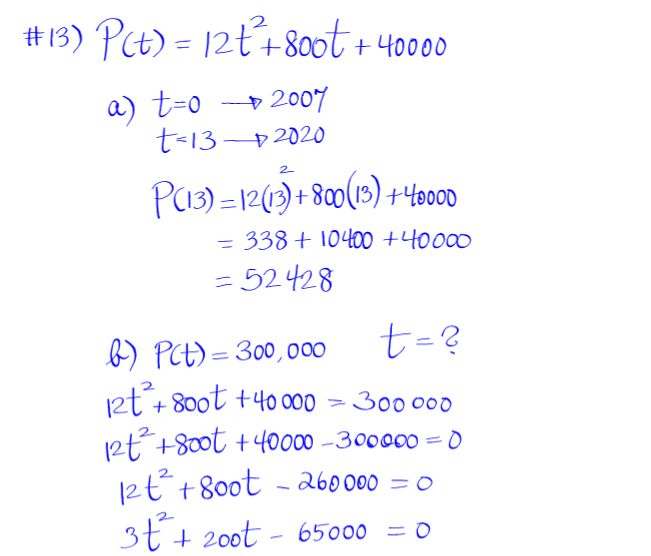 #13) P(t) = 12t²+800t+40000
a) t=0 → 2007
t=13 → 2020
P(13)=12(13)²+800(13)+40000
= 338+10400+40000
= 52428
b) P(t)=300,000 t=?
12t²+800t+40000=300000
12t²+800t+40000-300000=0
12t²+800t-260000=0
3t²+200t-65000=0